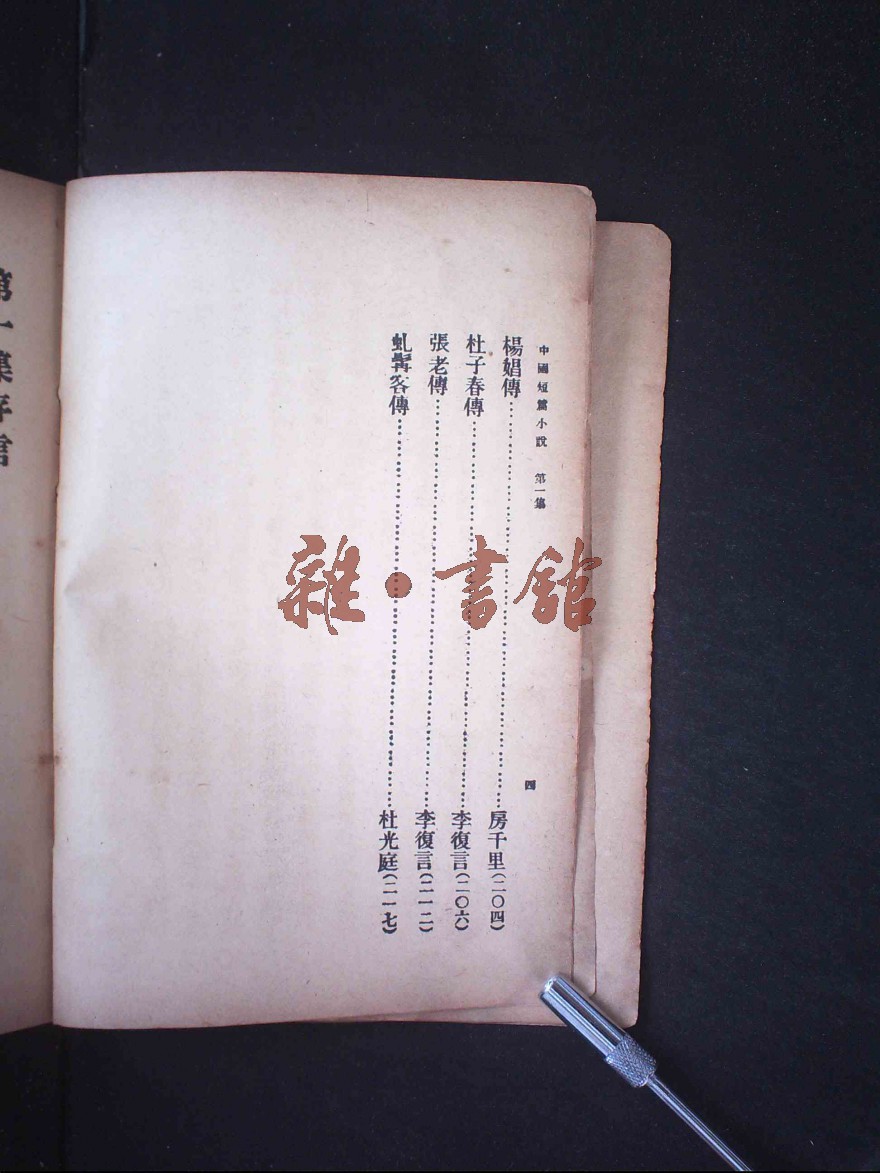 中國短篇小說　第一集
四
楊娼傳……房千里(二〇四)
杜子春傳……李復言(二〇六)
張老傳……李復言(二一二)
虬髯客傳……杜光庭(二一七)
雜·書館
第一集序言